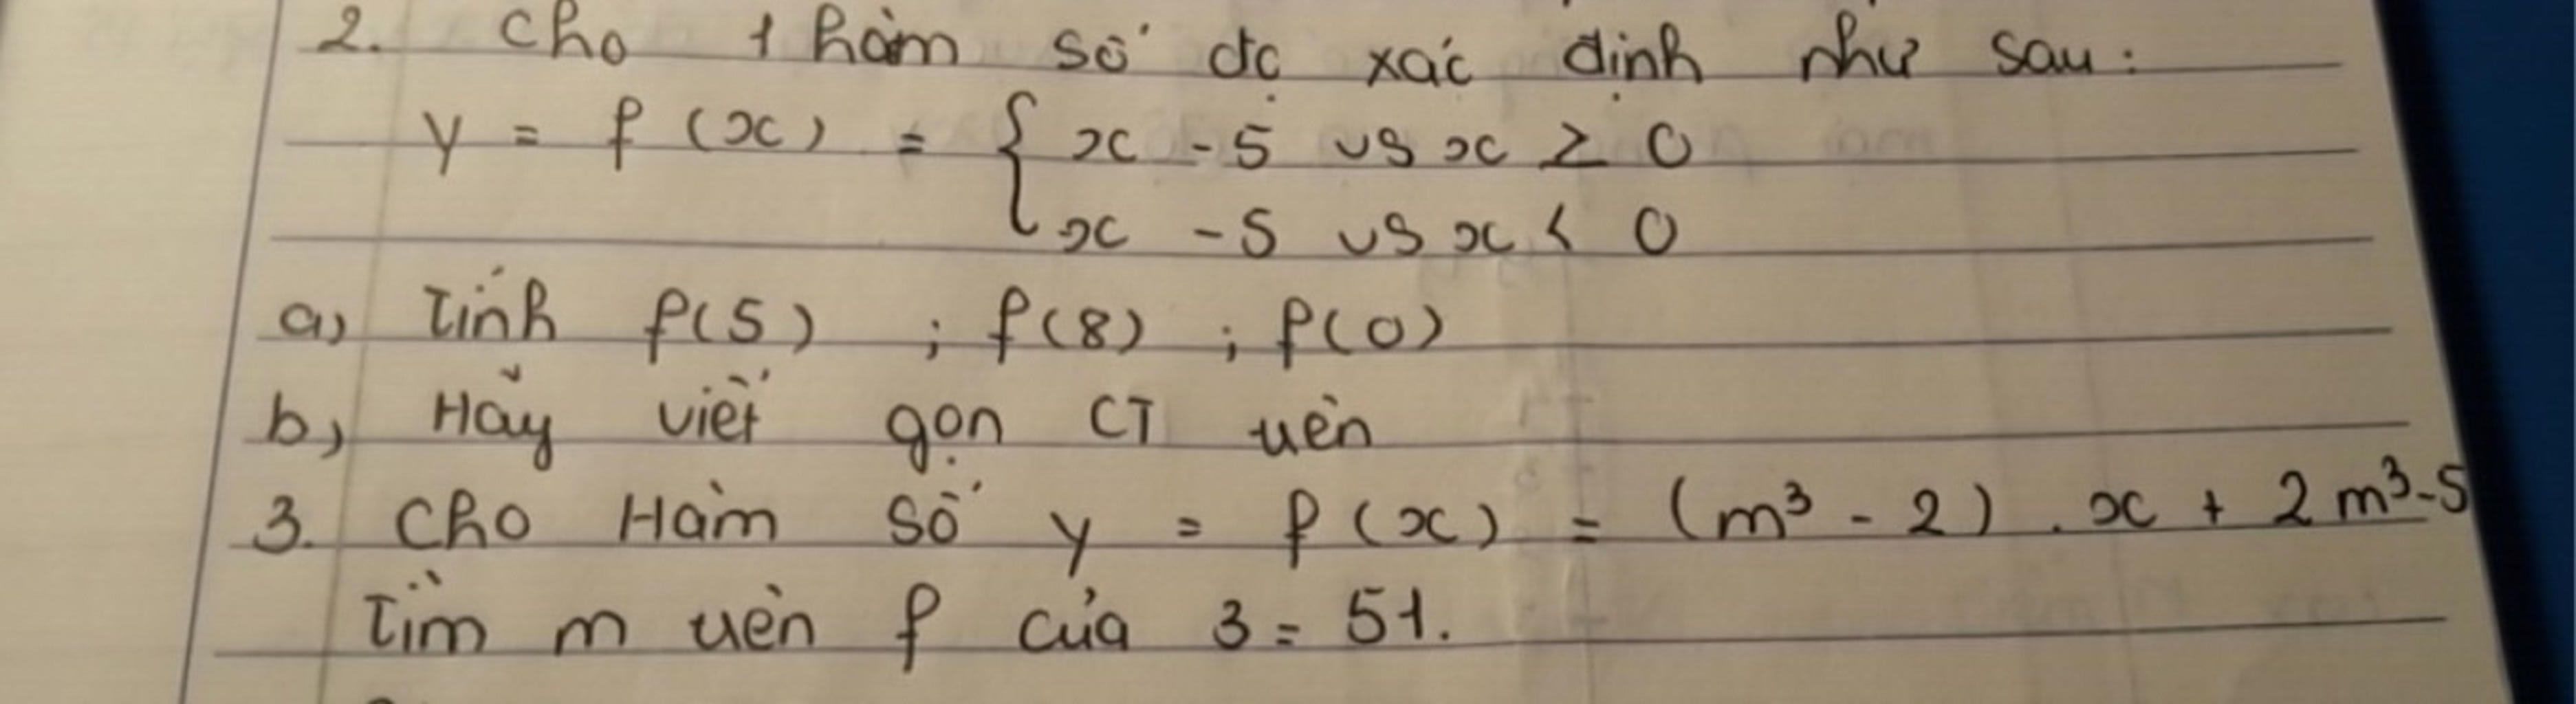 2. Cho 1 hàm số đc xác định như sau:
y = f(x) = { x - 5 vs x ≥ 0
x - 5 vs x < 0
a) Tính f(5) ; f(8) ; f(0)
b) Hãy viết gọn CT uên
3. Cho Hàm số y = f(x) = (m³ - 2) . x + 2m³-5
Tìm m uên f của 3 = 51.